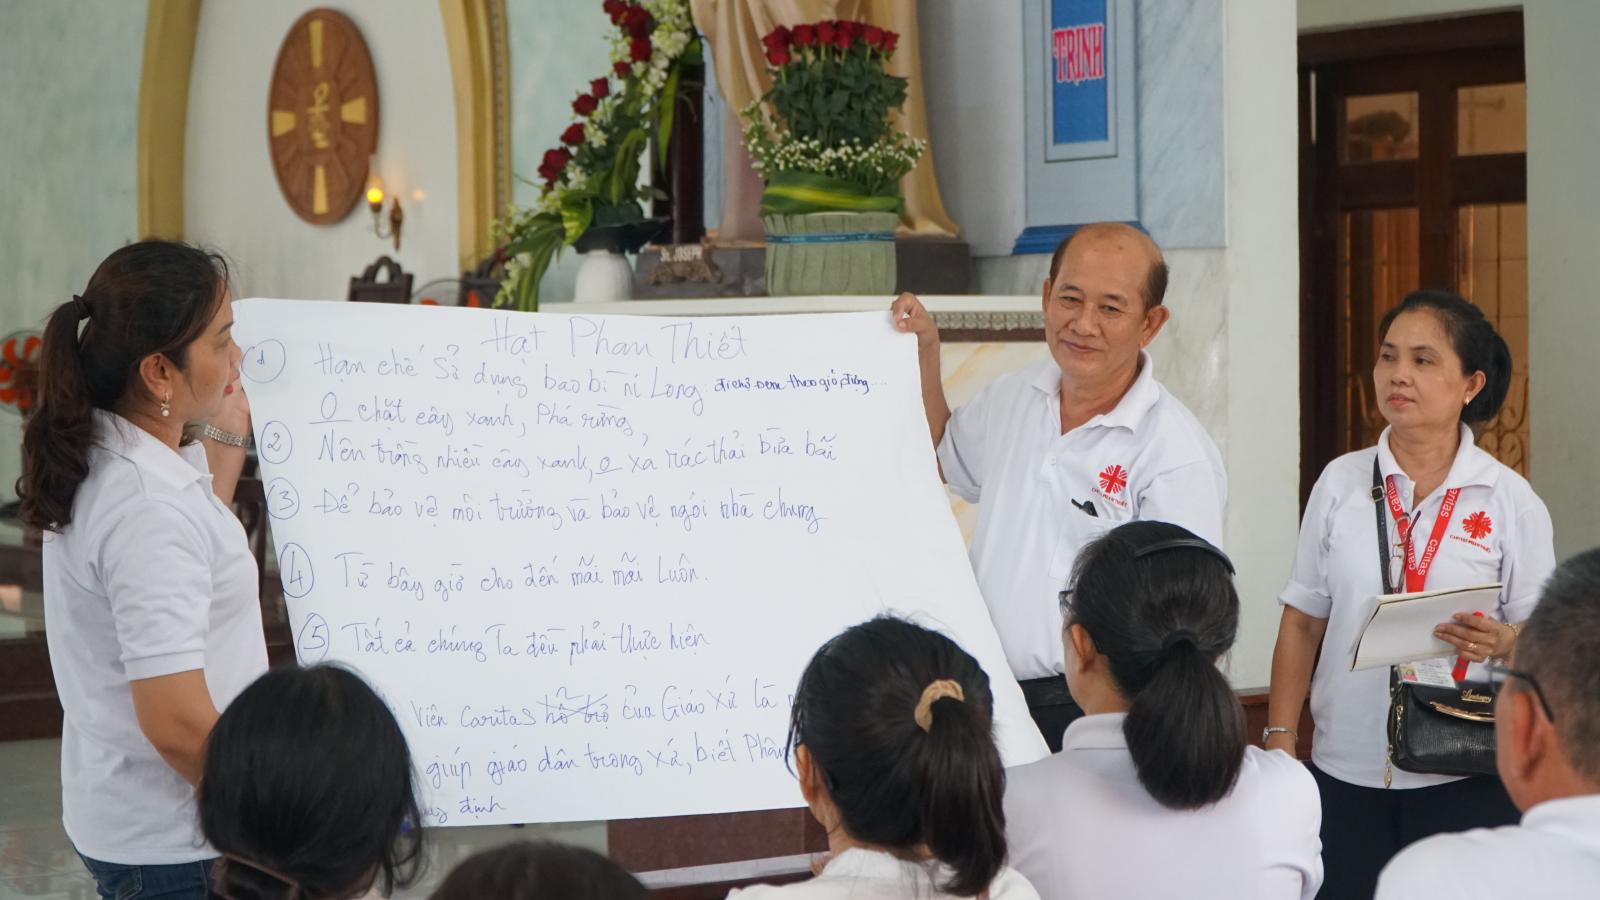 TRỊNH
St. JOSEPH
Hạt Phan Thiết
1 Hạn chế sử dụng bao bì ni Long: đi chợ đem theo giỏ, đựng....
O chặt cây xanh, phá rừng
2 Nên trồng nhiều cây xanh, O xả rác thải bừa bãi
3 Để bảo vệ môi trường và bảo vệ ngôi nhà chung
4 Từ bây giờ cho đến mãi mãi Luôn.
5 Tất cả chúng Ta đều phải thực hiện
Viên Caritas hỗ trợ của Giáo Xứ Là
giúp giáo dân trong xá, biết Phân
định
CARITAS PHAN THIẾT
caritas
CARITAS PHAN THIẾT